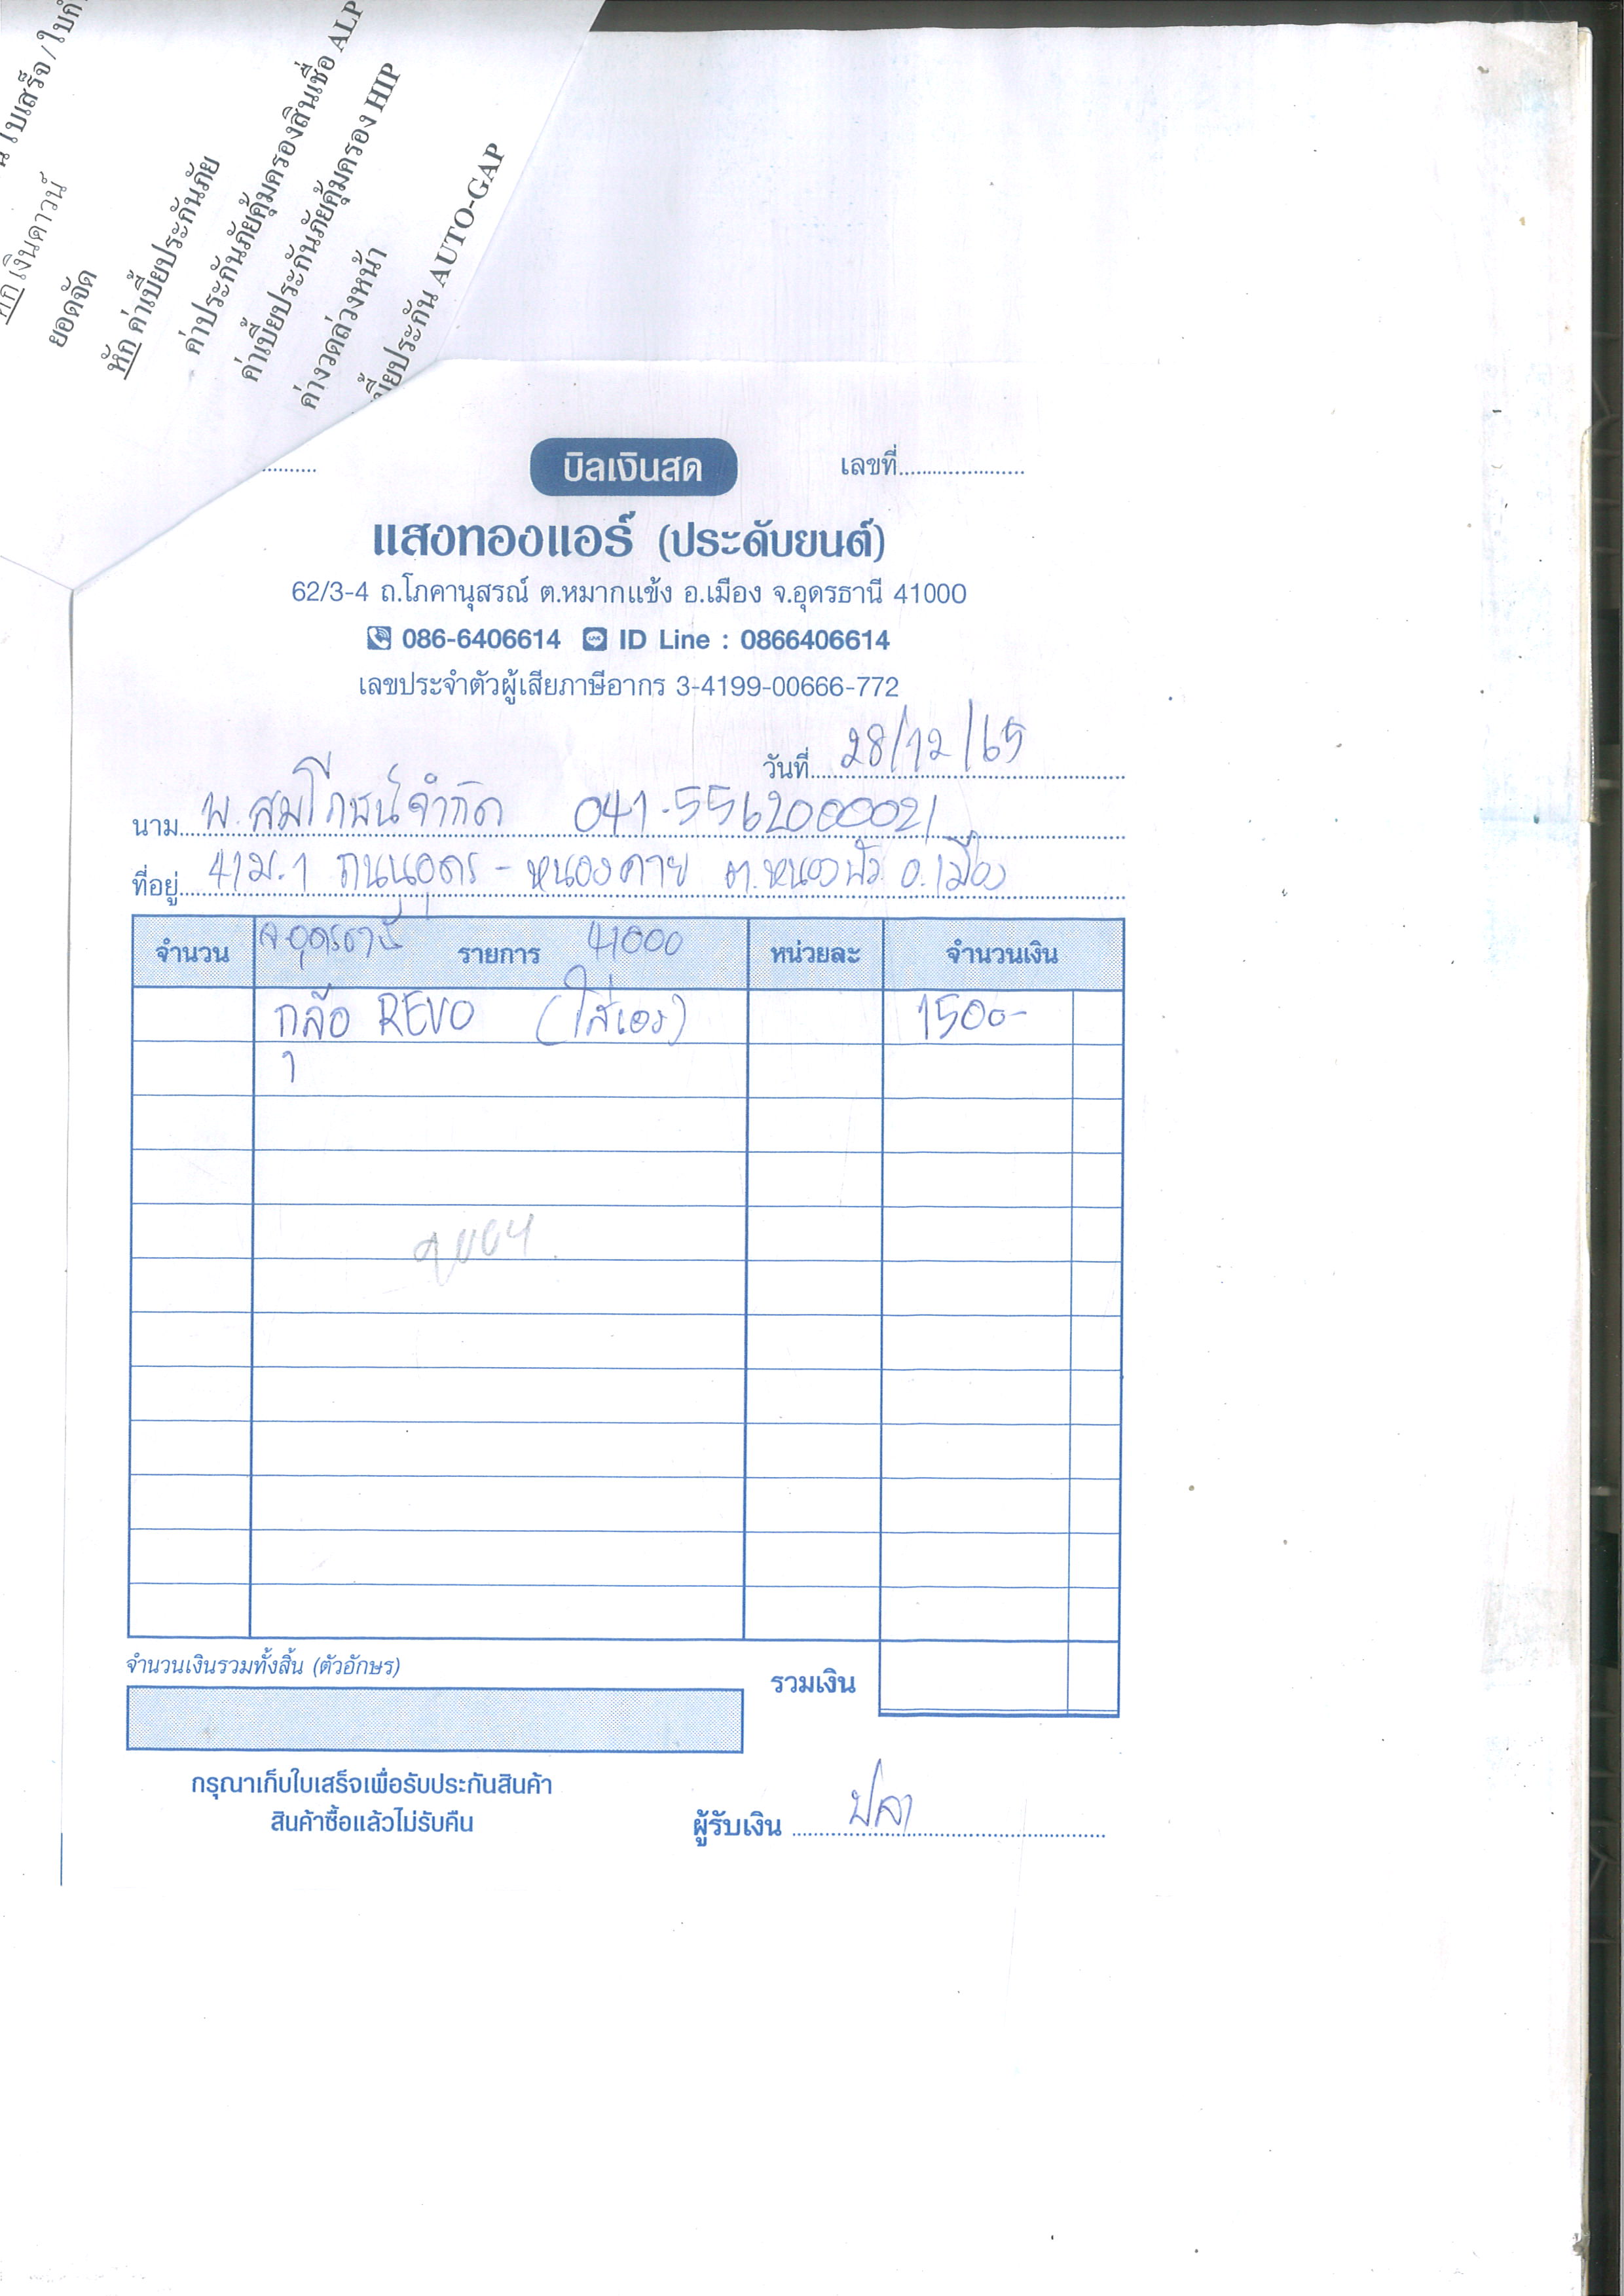 หัก เงินดาวน์
ยอดจัด
หัก ค่าเบี้ยประกันภัย
ค่าประกันภัยคุ้มครองสินเชื่อ ALP
ค่าเบี้ยประกันภัยคุ้มครอง HIP
ค่างวดล่วงหน้า
เบี้ยประกัน AUTO-GAP
บิลเงินสด
เลขที่
แสงทองแอร์ (ประดับยนต์)
62/3-4 ถ.โภคานุสรณ์ ต.หมากแข้ง อ.เมือง จ.อุดรธานี 41000
086-6406614 ID Line : 0866406614
เลขประจำตัวผู้เสียภาษีอากร 3-4199-00666-772
วันที่ 28/12/65
นาม พ.สมโภชน์จำกัด 041-5562000021
ที่อยู่ 41 ม.1 ถนนอุดร - หนองคาย ต.หนองบัว อ.เมือง
จ.อุดรธานี 41000
จำนวน รายการ หน่วยละ จำนวนเงิน
กล้อ REVO (ใส่เอง) 1500-
จำนวนเงินรวมทั้งสิ้น (ตัวอักษร)
รวมเงิน
กรุณาเก็บใบเสร็จเพื่อรับประกันสินค้า
สินค้าซื้อแล้วไม่รับคืน
ผู้รับเงิน ปลา